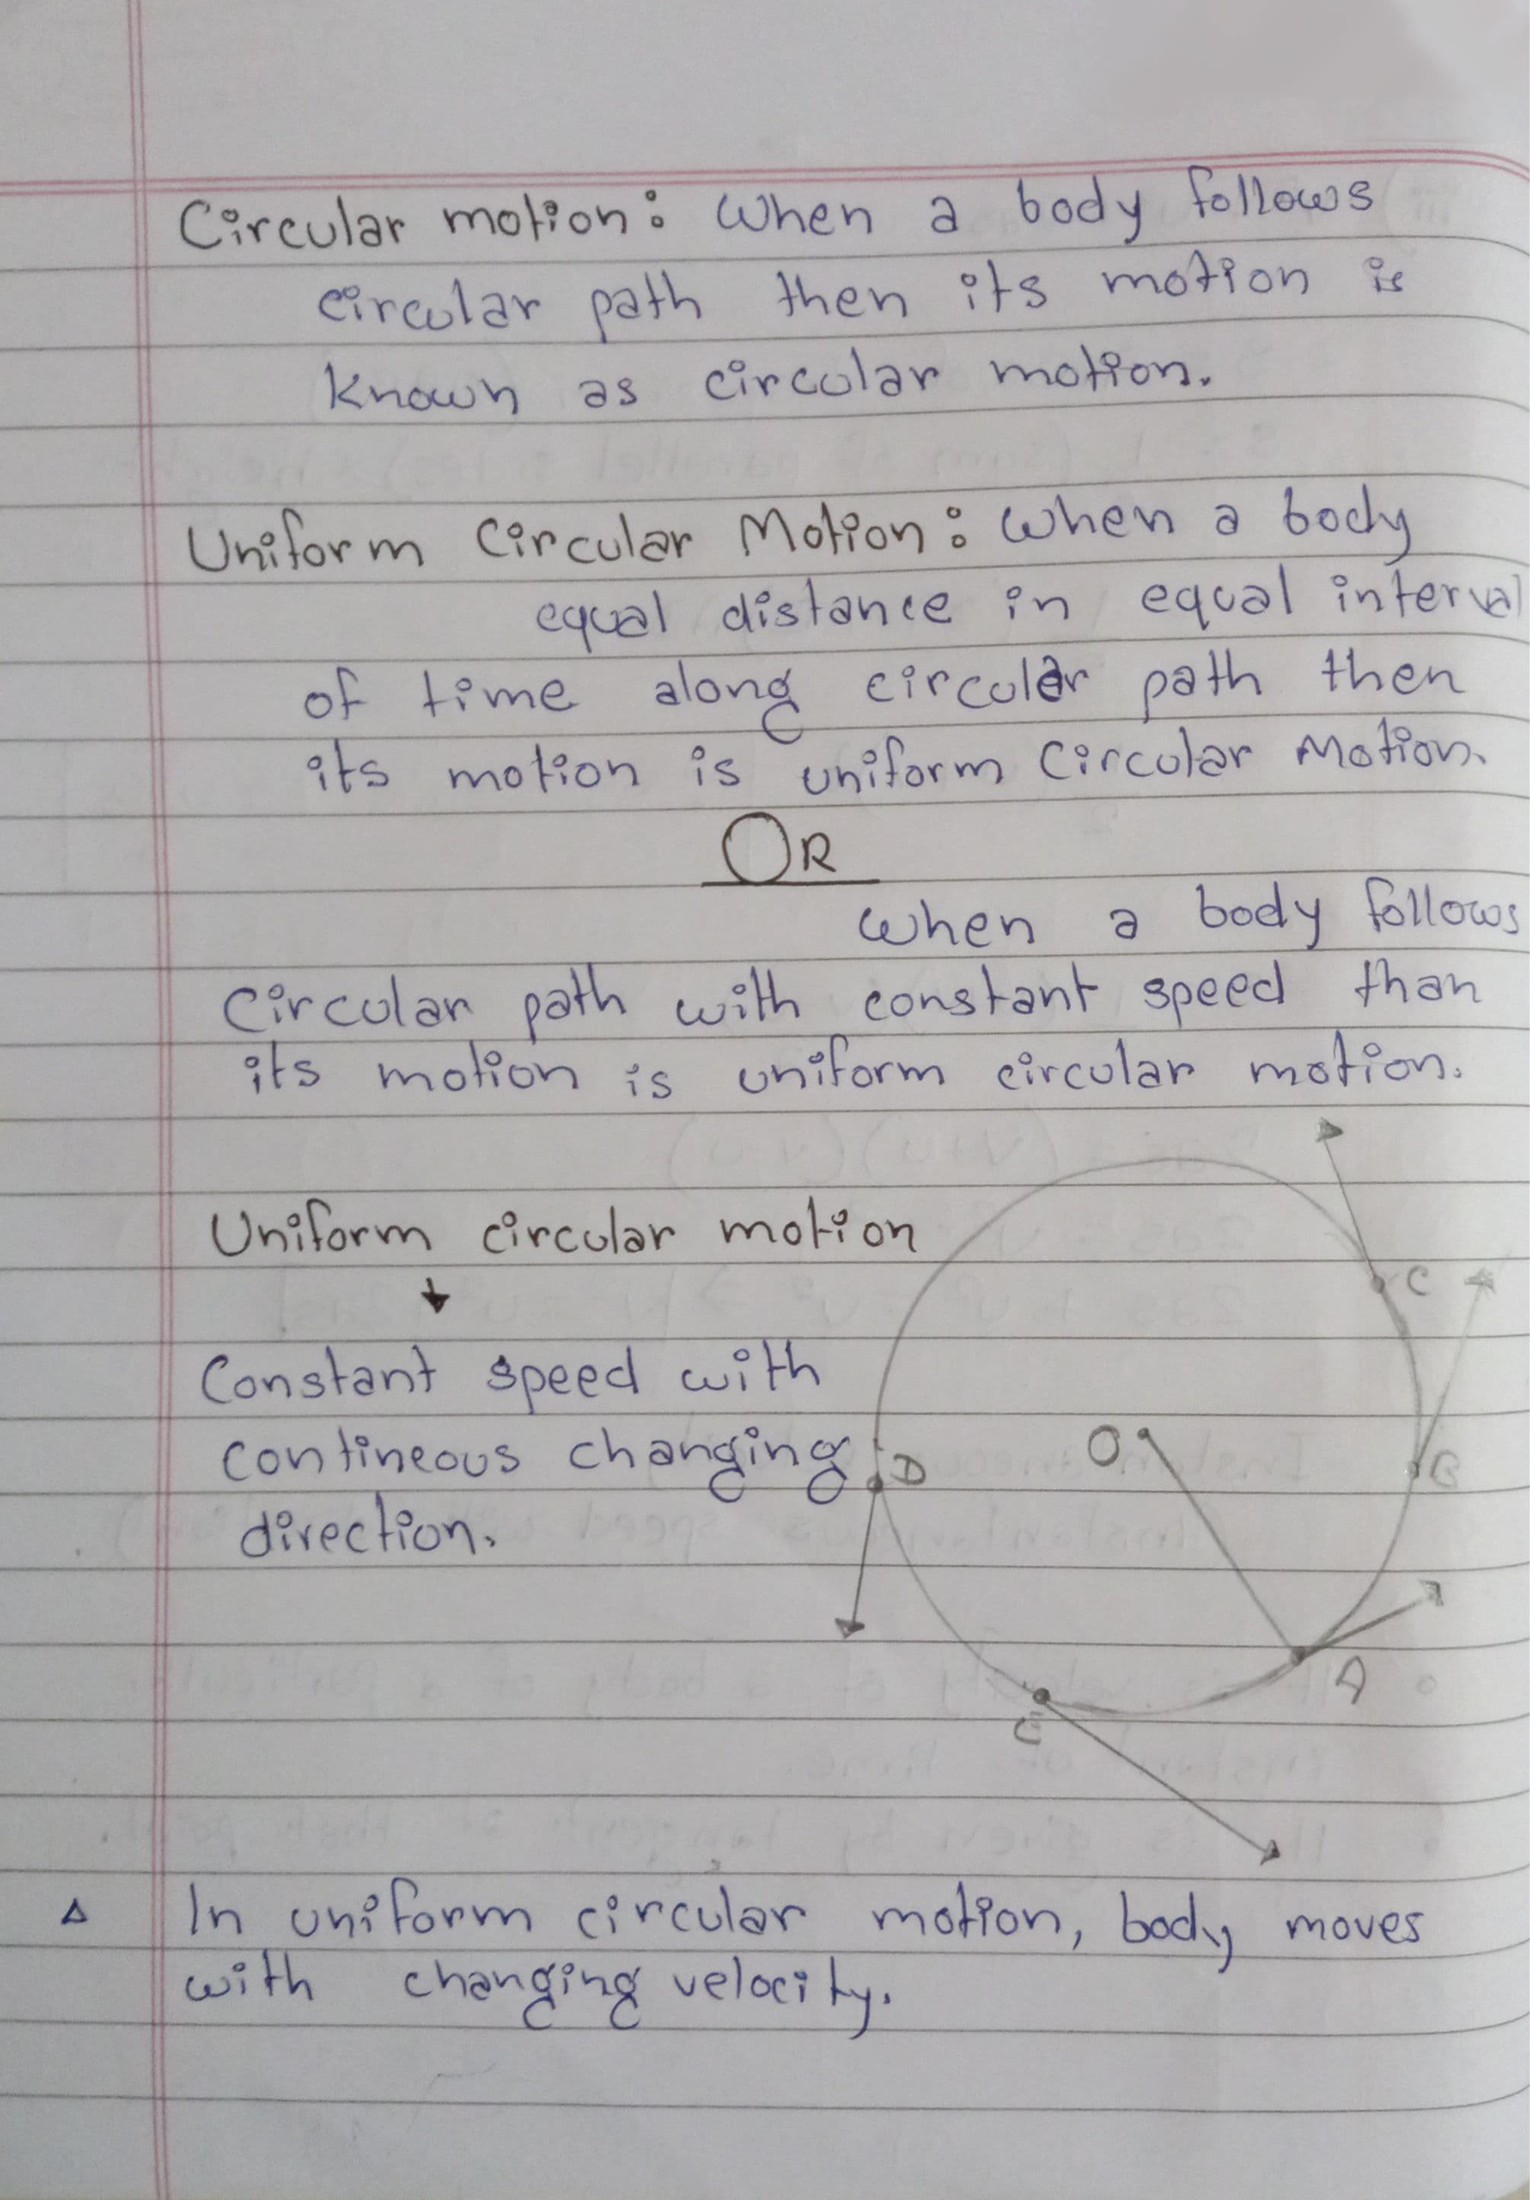 Circular motion: When a body follows
circular path then its motion is
known as circular motion.
Uniform Circular Motion: When a body
equal distance in equal interval
of time along circular path then
its motion is uniform Circular Motion.
OR
When a body follows
Circular path with constant speed than
its motion is uniform circular motion.
Uniform circular motion
Constant speed with
contineous changing
direction.
C
O
D
B
A
E
In uniform circular motion, body moves
with changing velocity.